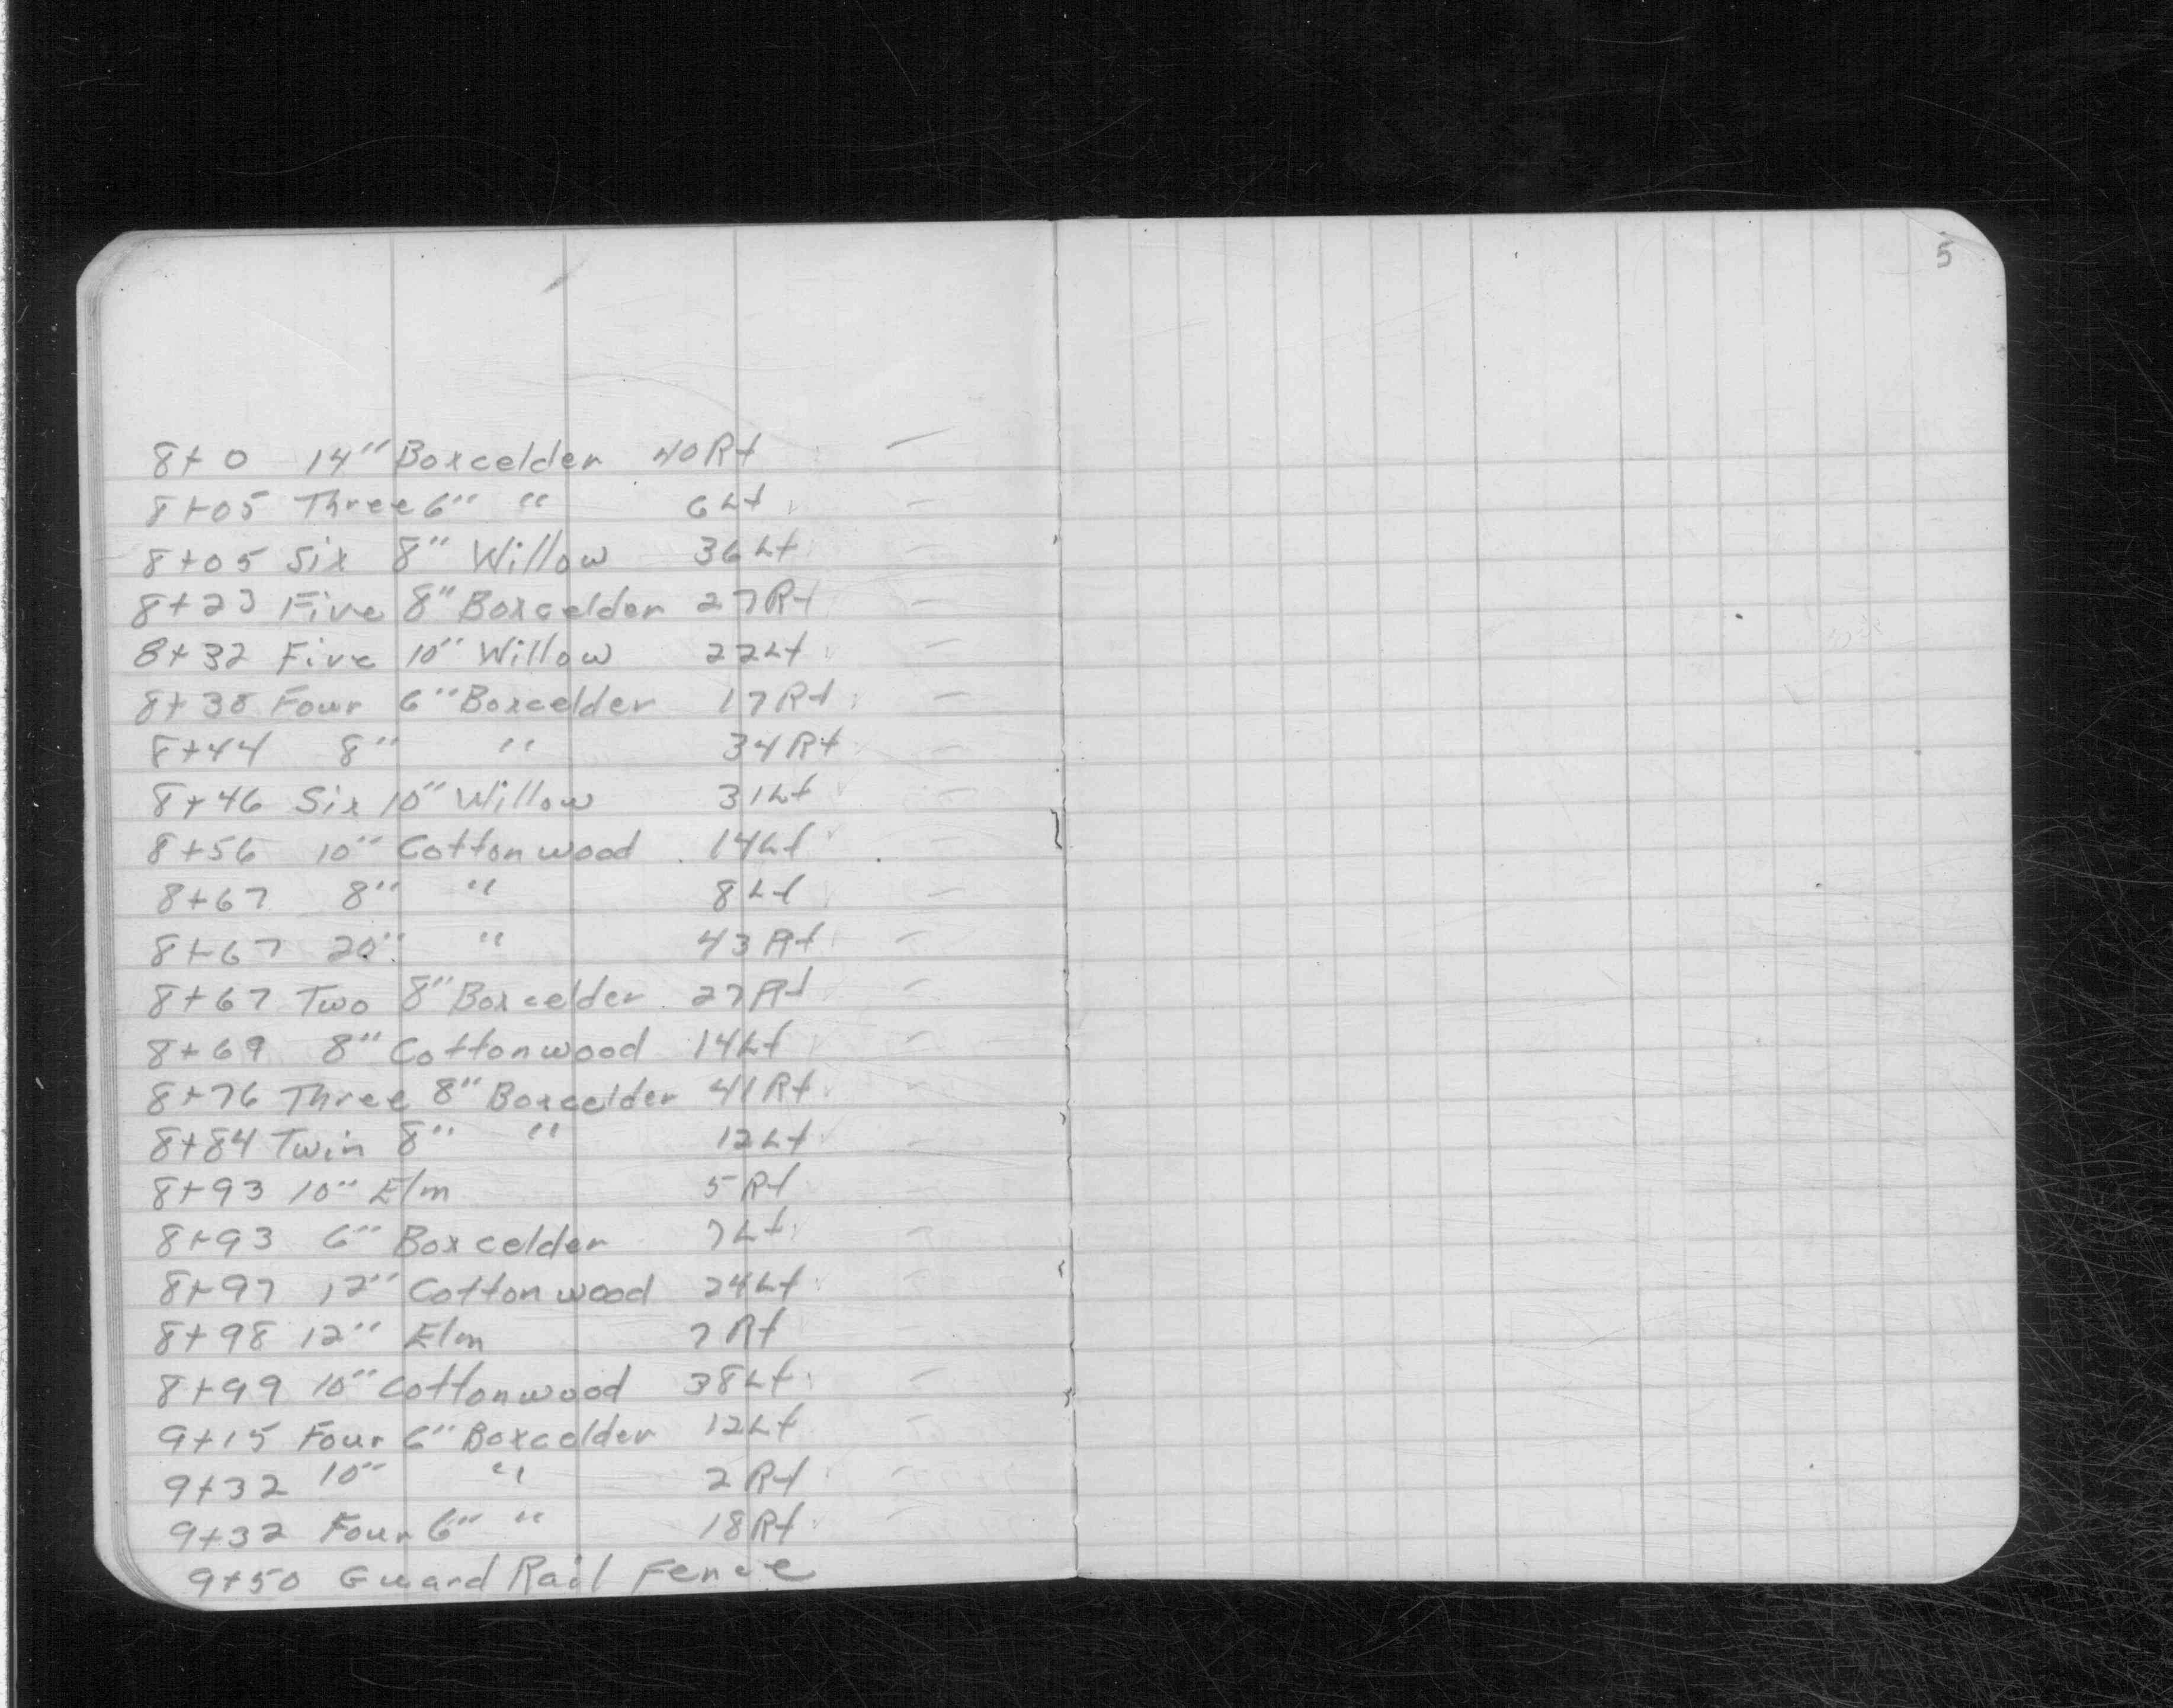 5
8+0 14" Boxcelder 40Rt —
8+05 Three 6" " 6Lt —
8+05 Six 8" Willow 36Lt —
8+23 Five 8" Boxcelder 27Rt —
8+32 Five 10" Willow 22Lt —
8+38 Four 6" Boxcelder 17Rt —
8+44 8" " 34Rt —
8+46 Six 10" Willow 31Lt —
8+56 10" Cottonwood 14Lt —
8+67 8" " 8Lt —
8+67 20" " 43Rt —
8+67 Two 8" Boxcelder 27Rt —
8+69 8" Cottonwood 14Lt —
8+76 Three 8" Boxcelder 41Rt —
8+84 Twin 8" " 12Lt —
8+93 10" Elm 5Rt —
8+93 6" Boxcelder 7Lt —
8+97 12" Cottonwood 24Lt —
8+98 12" Elm 7Rt —
8+99 10" Cottonwood 38Lt —
9+15 Four 6" Boxcelder 12Lt —
9+32 10" " 2Rt —
9+32 Four 6" " 18Rt —
9+50 Guard Rail Fence